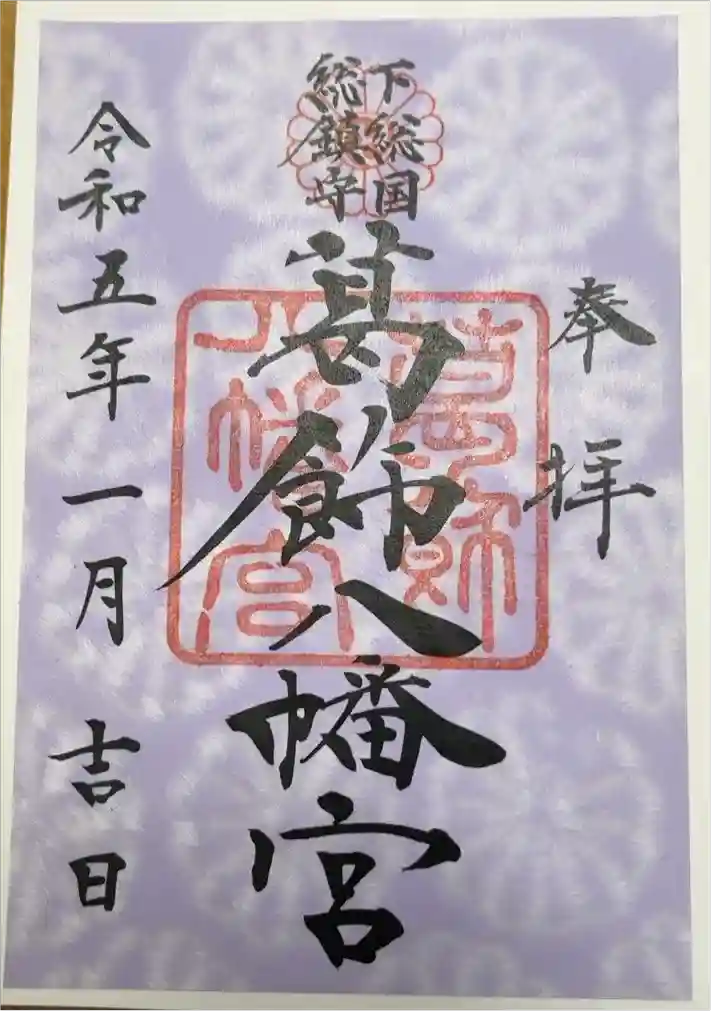 奉拝
下総国
総鎮守
葛飾八幡宮
葛飾
八幡宮
令和五年一月 吉日